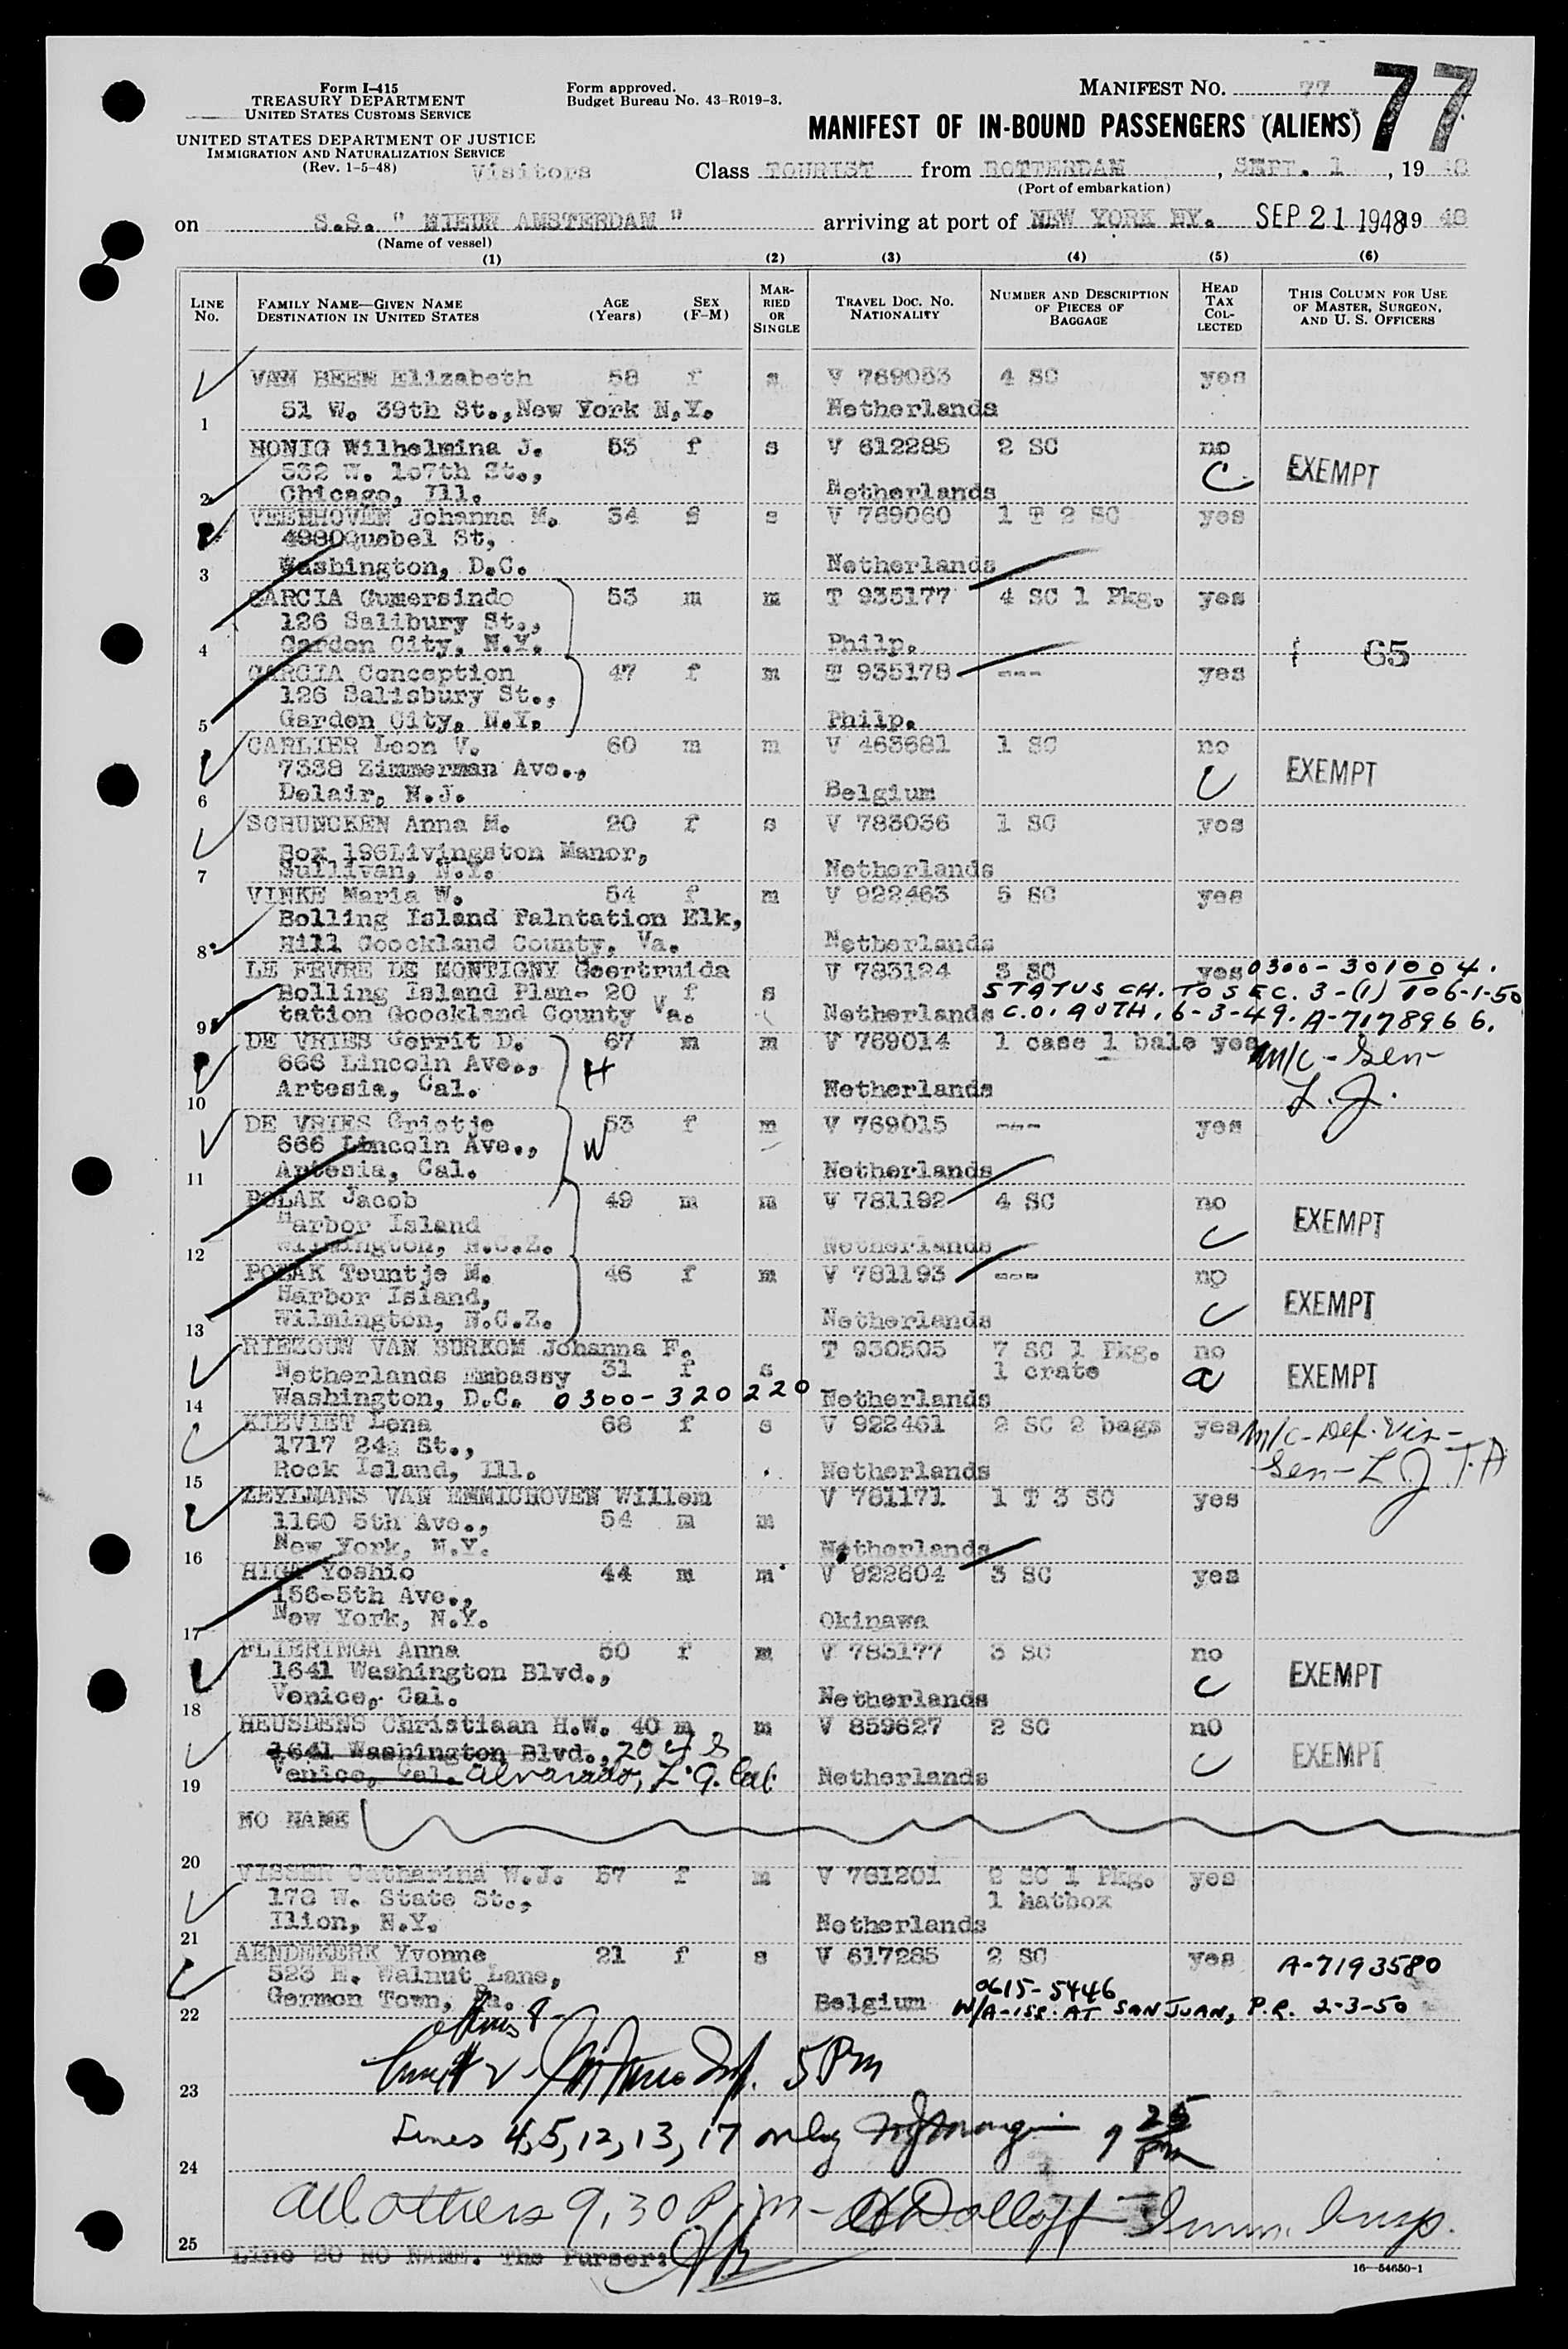 Form I-415
TREASURY DEPARTMENT
UNITED STATES CUSTOMS SERVICE
UNITED STATES DEPARTMENT OF JUSTICE
IMMIGRATION AND NATURALIZATION SERVICE
(Rev. 1-5-48)
Visitors
Form approved.
Budget Bureau No. 43-R019-3.
MANIFEST NO. 77
77
MANIFEST OF IN-BOUND PASSENGERS (ALIENS)
Class TOURIST from ROTTERDAM, SEPT. 1, 19 48
(Port of embarkation)
on S.S. " NIEUW AMSTERDAM " arriving at port of NEW YORK NY. SEP 21 1948 19 48
(Name of vessel)
(1) (2) (3) (4) (5) (6)
LINE No. FAMILY NAME—GIVEN NAME DESTINATION IN UNITED STATES AGE (Years) SEX (F-M) MARRIED OR SINGLE TRAVEL DOC. NO. NATIONALITY NUMBER AND DESCRIPTION OF PIECES OF BAGGAGE HEAD TAX COLLECTED THIS COLUMN FOR USE OF MASTER, SURGEON, AND U. S. OFFICERS
VAN BEEN Elizabeth 58 f s V 769053 4 SC yes
51 W. 39th St.,New York N.Y. Netherlands
1
HONIG Wilhelmina J. 53 f s V 612285 2 SC no
532 W. 107th St., C EXEMPT
2 Chicago, Ill. Netherlands
VEENHOVEN Johanna M. 34 f s V 769060 1 T 2 SC yes
4980Quebel St,
3 Washington, D.C. Netherlands
GARCIA Gumersindo 53 m m T 935177 4 SC 1 Pkg. yes
126 Salibury St.,
4 Garden City, N.Y. Philp.
65
GARCIA Conception 47 f m T 935178 --- yes
126 Salisbury St.,
5 Garden City, N.Y. Philp.
CARLIER Leon V. 60 m m V 463681 1 SC no
7338 Zimmerman Ave., EXEMPT
6 Delair, N.J. Belgium C
SCHUNCKEN Anna M. 20 f s V 783036 1 SC yes
Box 196Livingston Manor,
7 Sullivan, N.Y. Netherlands
VINKE Maria W. 54 f m V 922463 5 SC yes
Bolling Island Palntation Elk,
8 Hill Goockland County, Va. Netherlands
LE FEVRE DE MONTIGNY Geertruida V 783124 3 SC yes 0300-301004.
Bolling Island Plan- 20 f s STATUS CH. TO SEC. 3-(1) TO 6-1-50
9 tation Goockland County Va. Netherlands C.O. AUTH. 6-3-49. A-7178966.
DE VRIES Gerrit D. 67 m m V 769014 1 case 1 bale yes
666 Lincoln Ave., H m/c - Sen-
10 Artesia, Cal. Netherlands L.J.
DE VRIES Grietje 53 f m V 769015 --- yes
666 Lincoln Ave., W
11 Artesia, Cal. Netherlands
POLAK Jacob 49 m m V 781192 4 SC no
Harbor Island EXEMPT
12 Wilmington, N.C.Z. Netherlands C
POLAK Teuntje M. 46 f m V 781193 --- no
Harbor Island, EXEMPT
13 Wilmington, N.C.Z. Netherlands C
RIEZOUW VAN BURKOM Johanna F. T 930505 7 SC 1 Pkg. no
Netherlands Embassy 31 f s 1 crate a EXEMPT
14 Washington, D.C. 0300-320220 Netherlands
KIEVIET Lena 68 f s V 922461 2 SC 2 bags yes m/c-Def. Vis-
1717 24 St., Sen- L.J. T.A
15 Rock Island, Ill. Netherlands
ZEYLMANS VAN EMMICHOVEN Willem V 781171 1 T 3 SC yes
1160 5th Ave., 54 m m
16 New York, N.Y. Netherlands
HIGA Yoshio 44 m m V 922604 3 SC yes
156-5th Ave.,
17 New York, N.Y. Okinawa
FLIERINGA Anna 50 f m V 783177 3 SC no
1641 Washington Blvd., EXEMPT
18 Venice, Cal. Netherlands C
HEUSDENS Christiaan H.W. 40 m m V 859627 2 SC no
1641 Washington Blvd., EXEMPT
19 Venice, Cal. Alvarado, L.A. Cal. Netherlands C
NO NAME
20
VISSER Catharina W.J. 57 f m V 781201 2 SC 1 Pkg. yes
178 W. State St., 1 hatbox
21 Ilion, N.Y. Netherlands
AENDEKERK Yvonne 21 f s V 617285 2 SC yes A-7193580
523 E. Walnut Lane, 0615-5446
22 Germon Town, Pa. Belgium W/A-ISS. AT SAN JUAN, P.R. 2-3-50
23 5 Pm
24 Lines 4,5,12,13,17 only 9 25 pm
25 All others 9,30 P.m- Dolloff Imm. Insp.
Line 20 NO NAME. The Purser:
16—54650-1